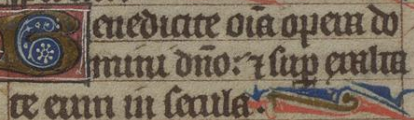 Benedicite oı̃a opera do
mini dño: ⁊ sup̲ exalta
te eum in secula.